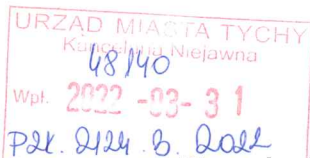 URZĄD MIASTA TYCHY
Kancelaria Niejawna
48140
Wpł. 2022 -03- 3 1
PZK. 2124. 3. 2022